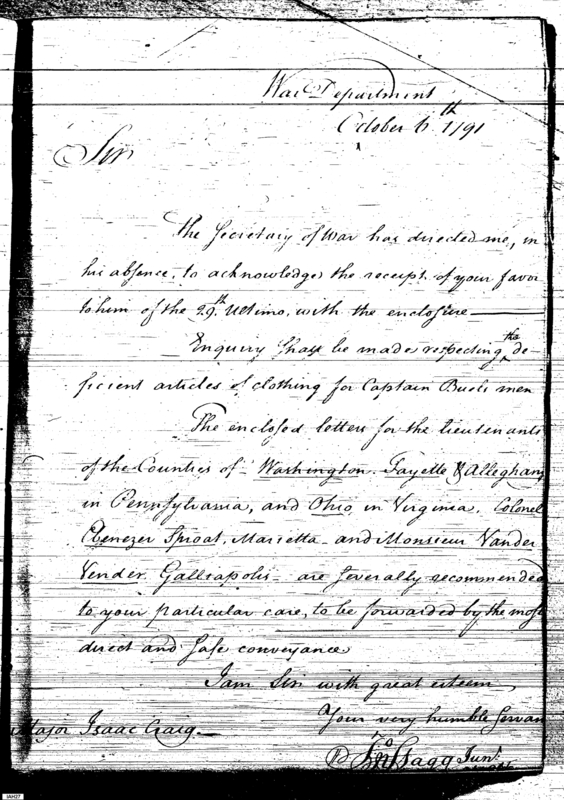 War Department
October 6th 1791
Sir
The Secretary of War has directed me, in
his absence, to acknowledge the receipt of your favor
to him of the 29th Ultimo, with the enclosure
Enquiry shall be made respecting the de-
ficient articles of clothing for Captain Buels men
The enclosed letters for the lieutenants
of the Counties of Washington, Fayette & Alleghany
in Pennsylvania, and Ohio in Virginia, Colonel
Ebenezer Sproat, Marietta - and Monsieur Vander
Vender Galliapolis - are severally recommended
to your particular care, to be forwarded by the most
direct and safe conveyance
I am Sir with great esteem
Your very humble Servan
Major Isaac Craig
Jno Stagg Junr
IAH27